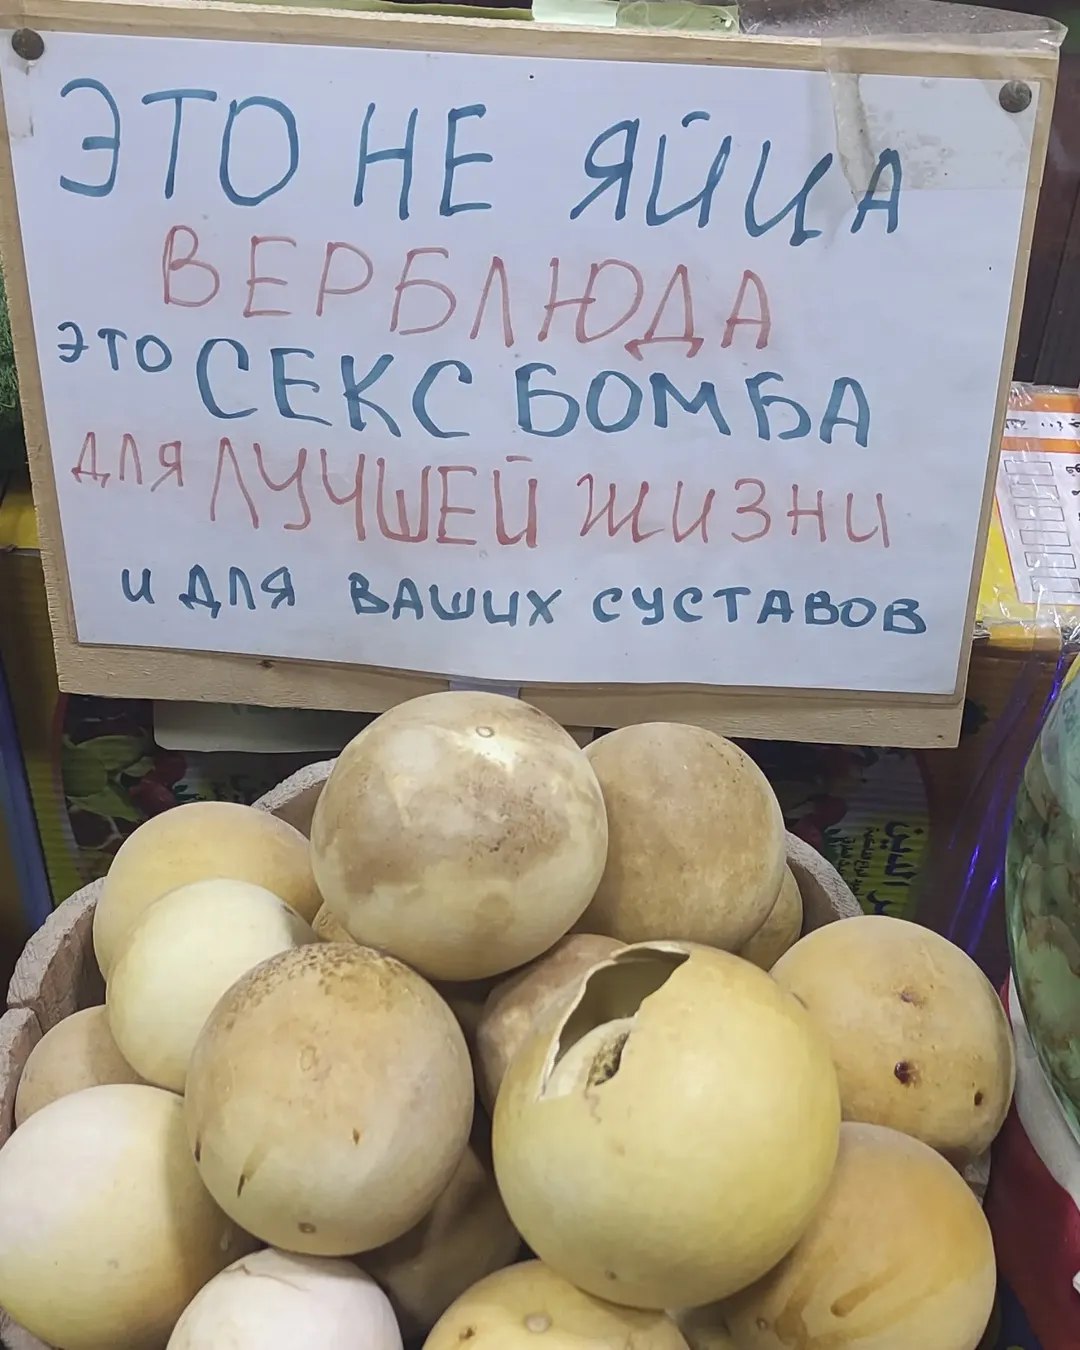 ЭТО НЕ ЯЙЦА
ВЕРБЛЮДА
ЭТО СЕКС БОМБА
ДЛЯ ЛУЧШЕЙ ЖИЗНИ
И ДЛЯ ВАШИХ СУСТАВОВ